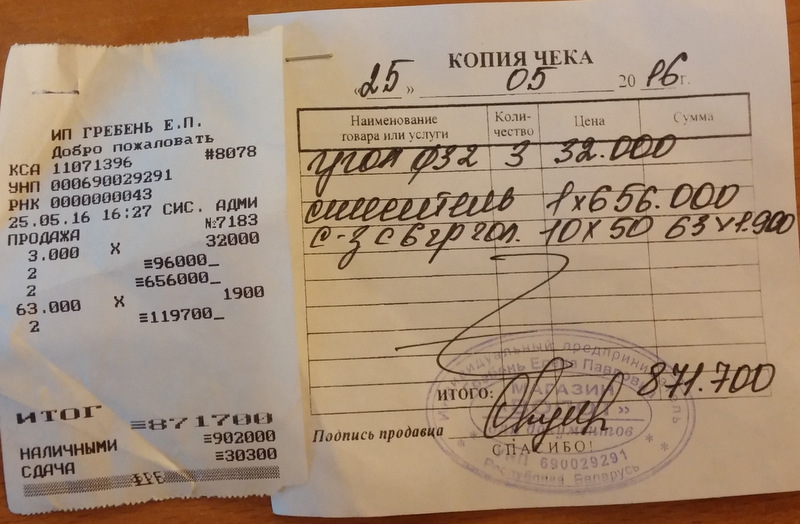 ИП ГРЕБЕНЬ Е.П.
Добро пожаловать
КСА 11071396 #8078
УНП 000690029291
РНК 0000000043
25.05.16 16:27 СИС. АДМИ
ПРОДАЖА №7183
3.000 X 32000
2 ≡96000_
2 ≡656000_
63.000 X 1900
2 ≡119700_
ИТОГ ≡871700
НАЛИЧНЫМИ ≡902000
СДАЧА ≡30300
КОПИЯ ЧЕКА
«25» 05 2016 г.
Наименование товара или услуги Коли-чество Цена Сумма
угол ф32 3 32.000
смеситель 1х656.000
с-з с 6 гр гол. 10х50 63х1.900
ИТОГО: 871.700
Подпись продавца
СПАСИБО!
Индивидуальный предприниматель
Гребень Павловна
МАГАЗИН
УНП 690029291
Республика Беларусь